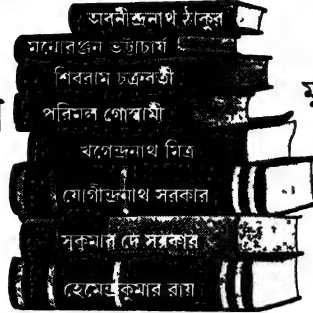 অবনীন্দ্রনাথ ঠাকুর
মনোরঞ্জন ভট্টাচার্য
শিবরাম চক্রবর্তী
পরিমল গোস্বামী
খগেন্দ্রনাথ মিত্র
যোগীন্দ্রনাথ সরকার
সুকুমার দে সরকার
হেমেন্দ্রকুমার রায়